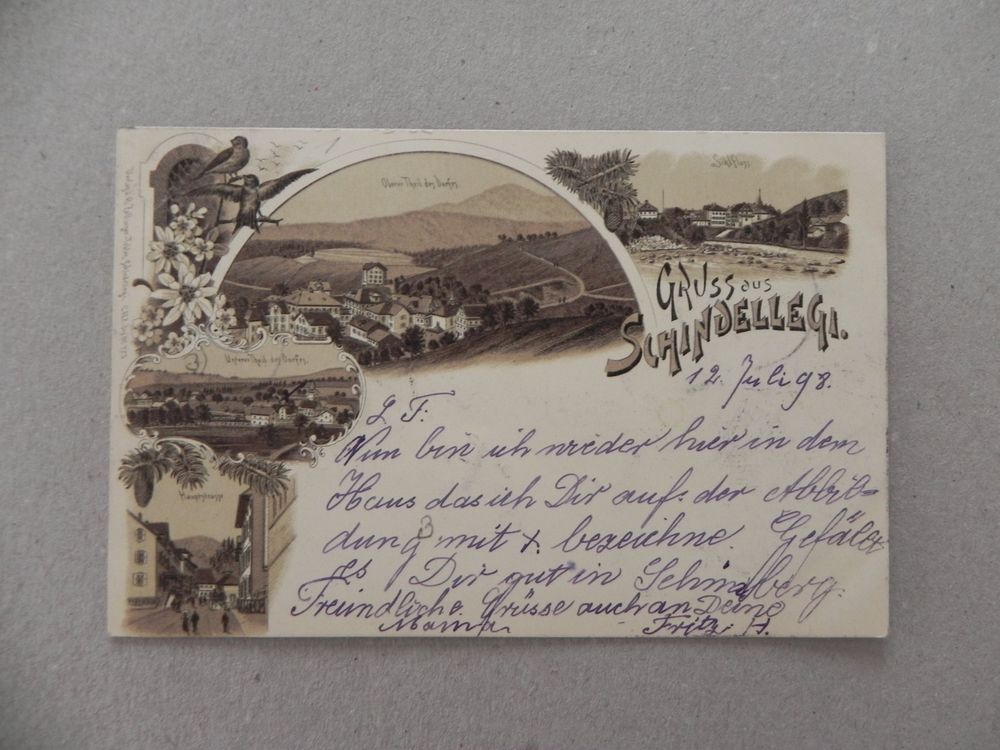 Oberer Theil des Dorfes.
Sihlfluss
GRUSS aus
SCHINDELLEGI.
12. Juli 98.
Unterer Theil des Dorfes.
Hauptstrasse
L F.
Nun bin ich wieder hier in dem
Haus das ich Dir auf der Abbil-
dung mit x. bezeichne. Gefällt
es Dir gut in Schimberg.
Freundliche Grüsse auch an Deine
Mama Fritz H.